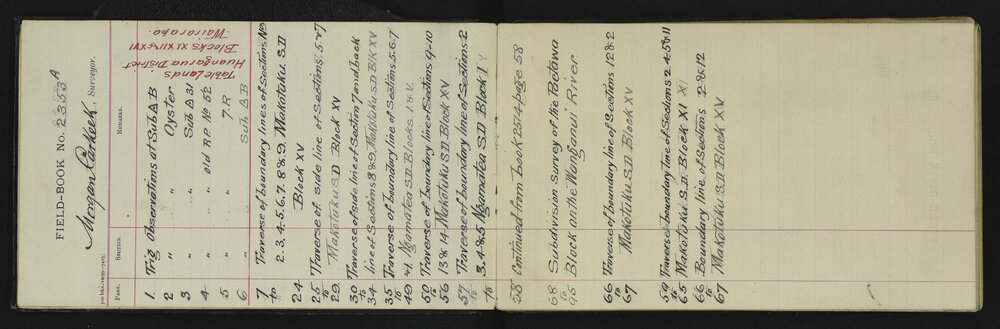 FIELD-BOOK No. 2353A
Morgan Carkeek, Surveyor.
Table Lands
Huangarua District
Blocks XI XII & XVI
Wairarapa.
PAGE. SECTION. REMARKS.
1 Trig Observations at Sub △ B
2 " " Oyster
3 " " Sub △ 31
4 " " Old R.P. No 52
5 " 7.R
6 " Sub △ B
7 Traverse of boundary lines of Sections Nos
to 2.3.4.5.6.7.8 & 9. Makotuku. S.D
24 Block XV
25 Traverse of side line of Sections. 5 & 7
to
29 Makotuku S.D Block XV
30 Traverse of side line of Section 7 and back
to
34 line of Sections 8 & 9, Makotuku S.D Blk XV
35 Traverse of boundary line of Sections 5.6.7
to
49 Ngamatea S.D. Blocks I & V.
50 Traverse of boundary line of Sections 9-10
to
56 13 & 14 Makotuku S.D Block XV
57 Traverse of boundary line of Sections 2
to 3.4 & 5 Ngamatea S.D Block I
58 Continued from book 2514 page 58
68 Subdivision Survey of the Retawa
to
95 Block on the Wanganui River
66 Traverse of boundary line of Sections 12 & 2
to
67 Makotuku S.D Block XV
59 Traverse boundary line of Sections 2.4.5 & 11
to
65 Makotuku S.D. Block XI XI
66 Boundary line of Sections 2 & 12
to
67 Makotuku S.D Block XV